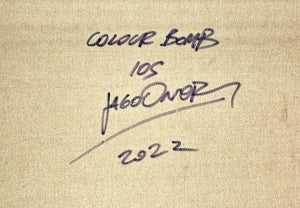 COLOUR BOMB
105
JAGO OWEN
2022